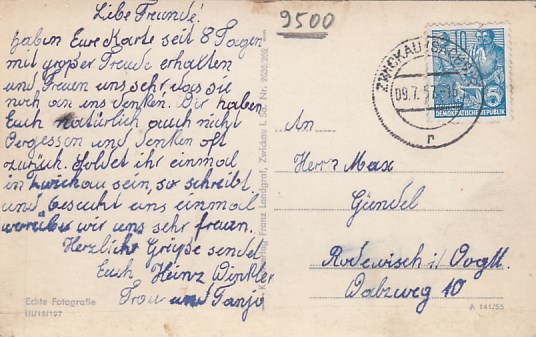 Liebe Freunde!
haben Eure Karte seit 8 Tagen
mit großer Freude erhalten
und Freuen uns sehr, das sie
noch an uns denken. Wir haben
Euch natürlich auch nicht
Vergessen und denken oft
zurück. Soldet ihr einmal
in Zwickau sein, so schreibt,
und Besucht uns einmal
worüber wir uns sehr freuen.
Herzliche Grüße sendet
Euch Heinz Winkler
Frau und Tanja
Echte Fotografie
III/18/197
Verlag Franz Landgraf, Zwickau i. Sa. Nr.
9500
ZWICKAU (SACHS)
09.7.57.-16
r
15
DEUTSCHE
DEMOKRATISCHE REPUBLIK
An
Herrn Max
Gündel
Rodewisch i/Vogtl.
Walzweg 10
A 141/55